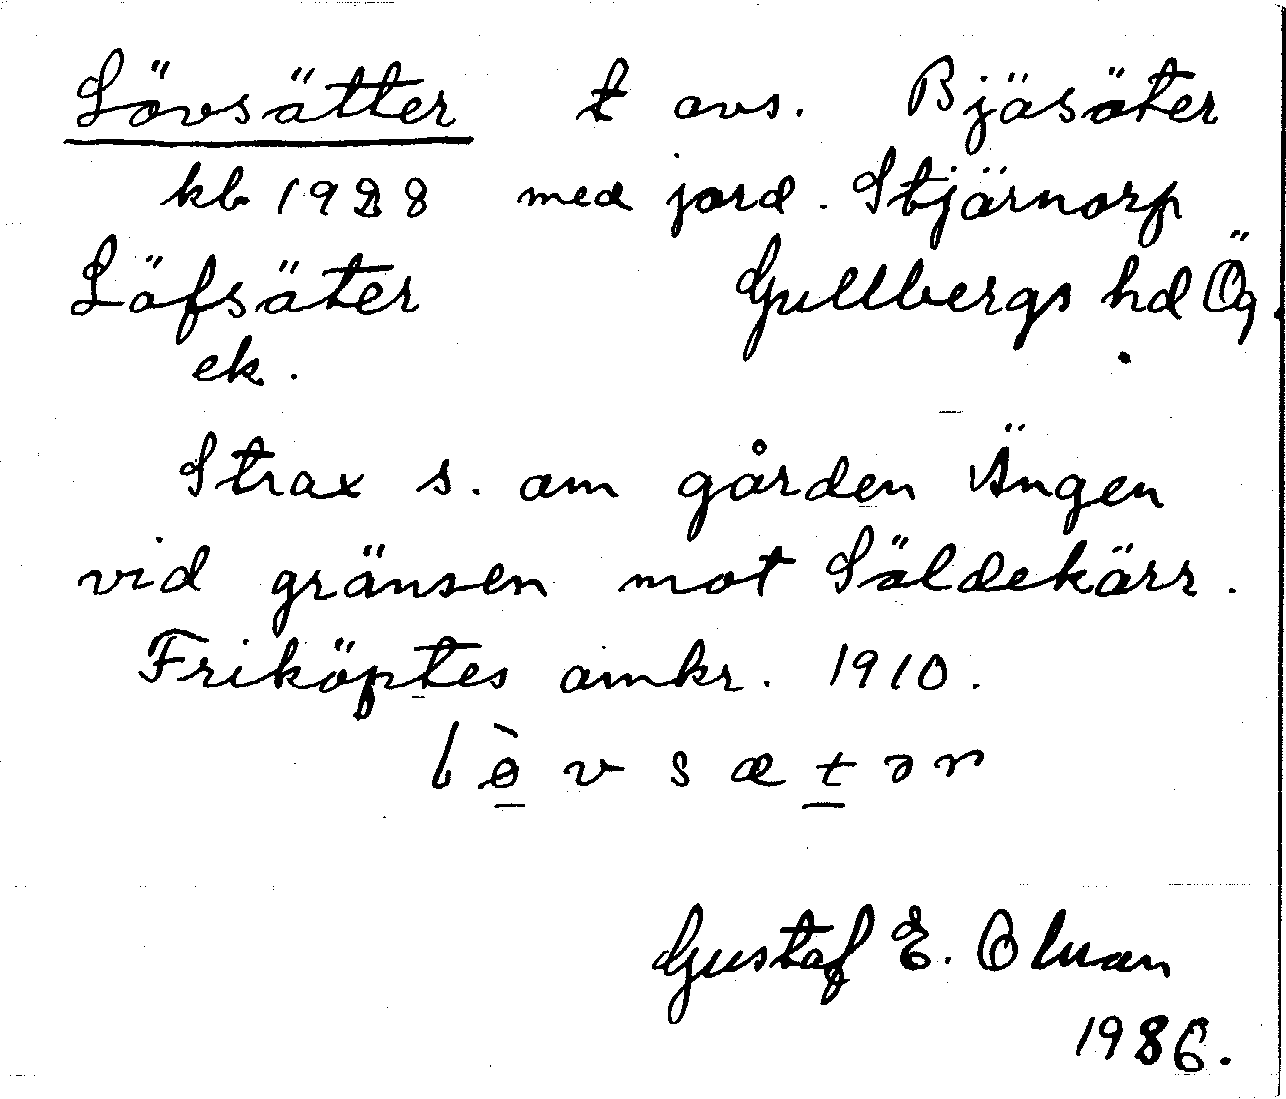 Lövsätter t avs. Bjäsäter
kb 1928 med jord. Stjärnorp
Löfsäter Gullbergs hd Ög.
ek.
Strax s. om gården Ängen
vid gränsen mot Säldekärr.
Friköptes omkr. 1910.
lø̀vsætər
Gustaf E. Olman
1986.